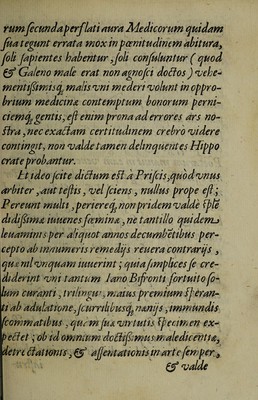 rum secunda perflati aura Medicorum quidam
sua tegunt errata mox in pœnitudinem abitura,
soli sapientes habentur, soli consuluntur (quod
& Galeno male erat non agnosci doctos) vehe-
mentissimisq, malis vni mederi volunt in oppro-
brium medicinæ contemptum bonorum perni-
ciemq, gentis, est enim prona ad errores ars no-
stra, nec exactam certitudinem crebro videre
contingit, non valde tamen delinquentes Hippo
crate probantur.
Et ideo scite dictum est à Priscis, quod vnus
arbiter, aut testis, vel sciens, nullus prope est;
Pereunt multi, periereq, non pridem valdè sple
didissimæ iuuenes fœminæ, ne tantillo quidem
leuaminis per aliquot annos decumbẽtibus per-
cepto ab innumeris remedijs reuera contrarijs,
quæ ni vnquam iuuerint; quia simplices se cre-
diderint vni tantum Iano Bifronti fortuito so-
lum curanti, trilingui, maius premium speran-
ti ab adulatione, scurrilibusq, nanijs, immundis
scommatibus, quàm sua virtutis specimen ex-
pectet; ob id omnium doctissimus maledicentiæ,
detrectationis, & assentationis in arte semper,
& valde